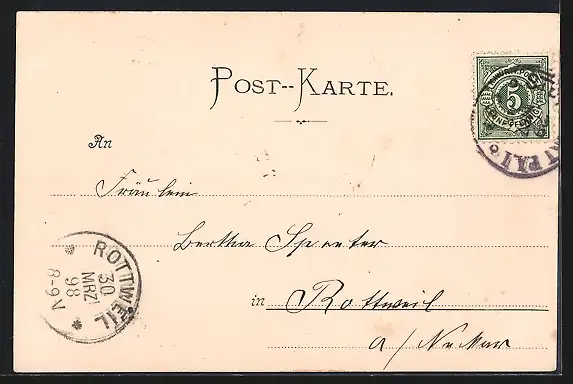 POST--KARTE.
5
FÜNF PFENNIG
An
Fräulein
Bertha
in Rottweil
a/Neckar
ROTTWEIL
30
MRZ
98
8-9 V